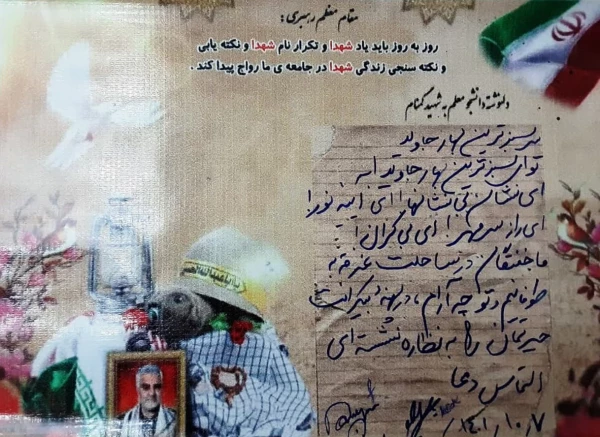 مقام معظم رهبری:
روز به روز باید یاد شهدا و تکرار نام شهدا و نکته یابی
و نکته سنجی زندگی شهدا در جامعه ی ما رواج پیدا کند .
دلنوشته دانشجو معلم به شهید گمنام
سرسبزترین بهار جاوید
توای سبزترین بهار جاوید
ای نشان بی نشانها! ای آینه نور!
ای راز سر به مهر! ای بی کران!
ما خفتگان در ساحلت غرق به
طوفانیم و تو چه آرام، در بیکرانت
حیرتمان را به نظاره نشسته ای
التماس دعا
۱۴۰۱/۱۰/۷
یا اباعبدالله الحسین